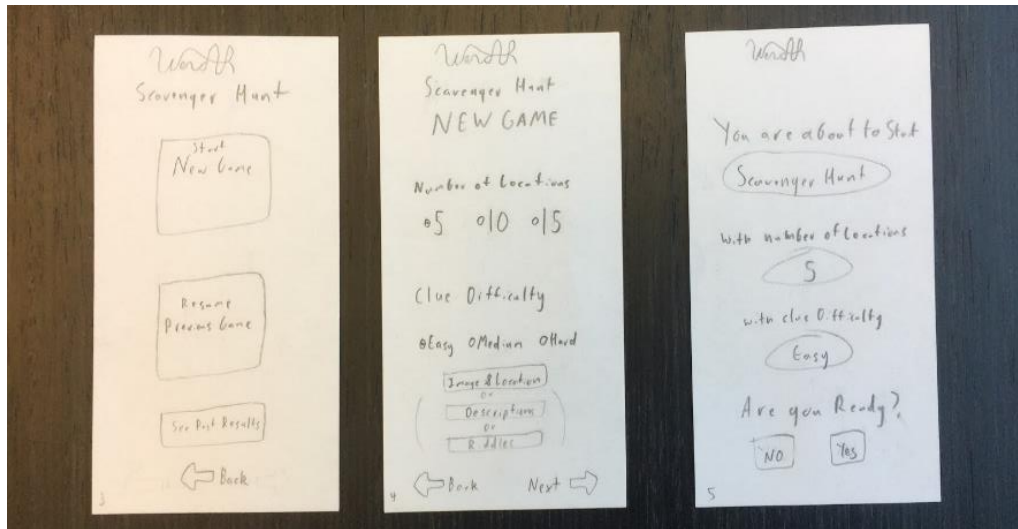 Scavenger Hunt
Start
New Game
Resume
Previous Game
See Past Results
Back
3
Scavenger Hunt
NEW GAME
Number of Locations
5 10 15
Clue Difficulty
Easy Medium Hard
Image & Location
or
Descriptions
or
Riddles
Back Next
4
You are about to Start
Scavenger Hunt
with number of Locations
5
with clue Difficulty
Easy
Are you Ready?
NO Yes
5